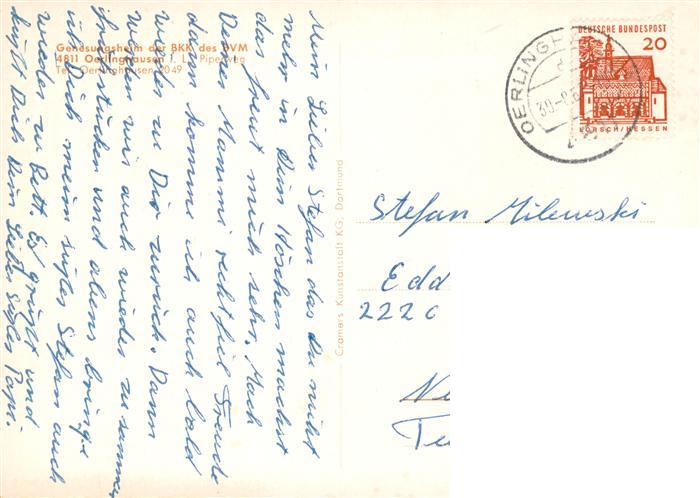 Genesungsheim der BKK des DVM
4811 Oerlinghausen i. L., Piperweg
Tel. Oerlinghausen 2049
Mein Lieber Stefan das du nicht
mehr in Dein Höschen machst
das freut mich sehr. Mach
Deiner Mammi recht fiel Freude
dann komme ich auch bald
wieder zu Dir zurück. Dann
werden wir auch wieder zusammen
frühstücken und abens bringe
ich Dich mein süßes Stefan auch
wieder zu Bett. Es grüßt und
küßt Dich Dein Lieber süßes Papi.
Cramers Kunstanstalt KG, Dortmund
DEUTSCHE BUNDESPOST
20
LORSCH/HESSEN
OERLINGH
30.-8.6
Stefan Milewski
Edd
222